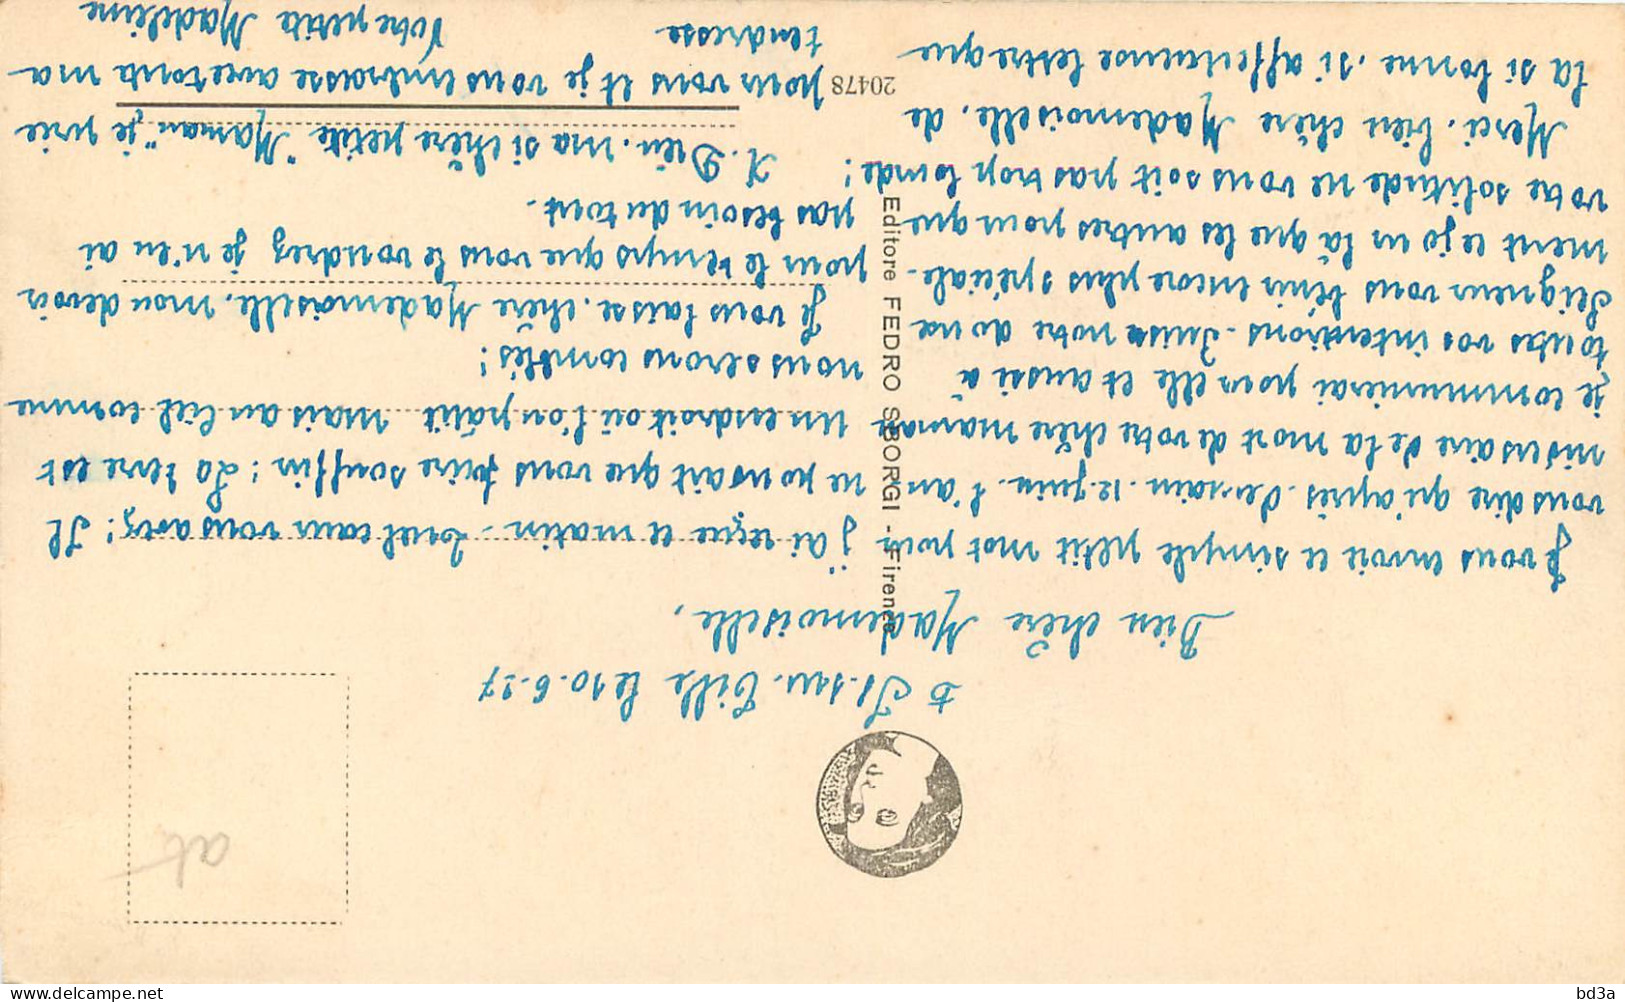 Is. sur. Tille le 10.6.27
Bien chère Mademoiselle,
Je vous envoie ce simple petit mot pour
vous dire qu'après. demain. 12. juin. l'an
niversaire de la mort de votre chère maman
je communierai pour elle et aussi à
toutes vos intentions. Puisse notre doux
Seigneur vous bénir encore plus spéciale-
ment ce jour là que les autres pour que
votre solitude ne vous soit pas trop lourde!
Merci. bien chère Mademoiselle. de
la si bonne. si affectueuse lettre que
j'ai reçue ce matin. Quel cœur vous avez! Il
ne pouvait que vous faire souffrir! La terre est
un endroit où l'on pâtit mais au Ciel comme
nous serons comblés!
Je vous laisse. chère Mademoiselle. mon devoir
pour le temps que vous le voudrez je n'en ai
pas besoin du tout.
A. Dieu. ma si chère petite "Maman" je prie
pour vous et je vous embrasse avec toute ma
tendresse
Votre petite Madeleine
Editore FEDRO SBORGI - Firenze
20478
at
bd3a